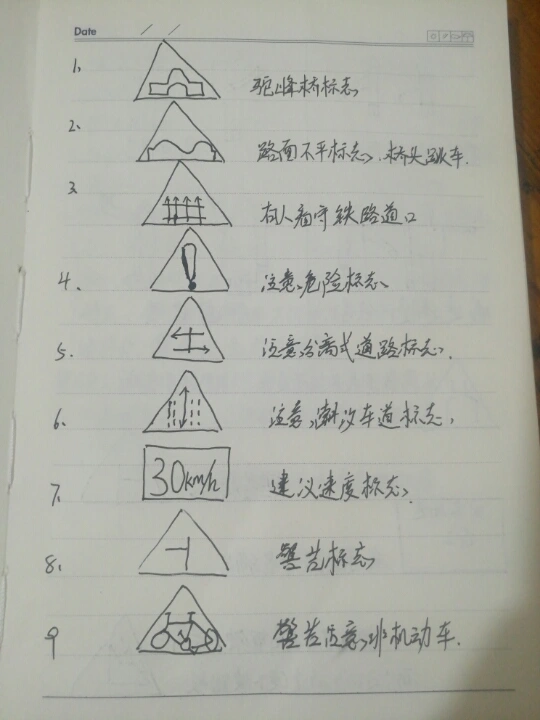 Date / /
1、 驼峰桥标志
2、 路面不平标志、桥头跳车.
3 有人看守铁路道口
4、 注意危险标志、
5. 注意分离式道路标志.
6、 注意潮汐车道标志,
7、 30km/h 建议速度标志
8、 警告标志
9 警告注意非机动车.